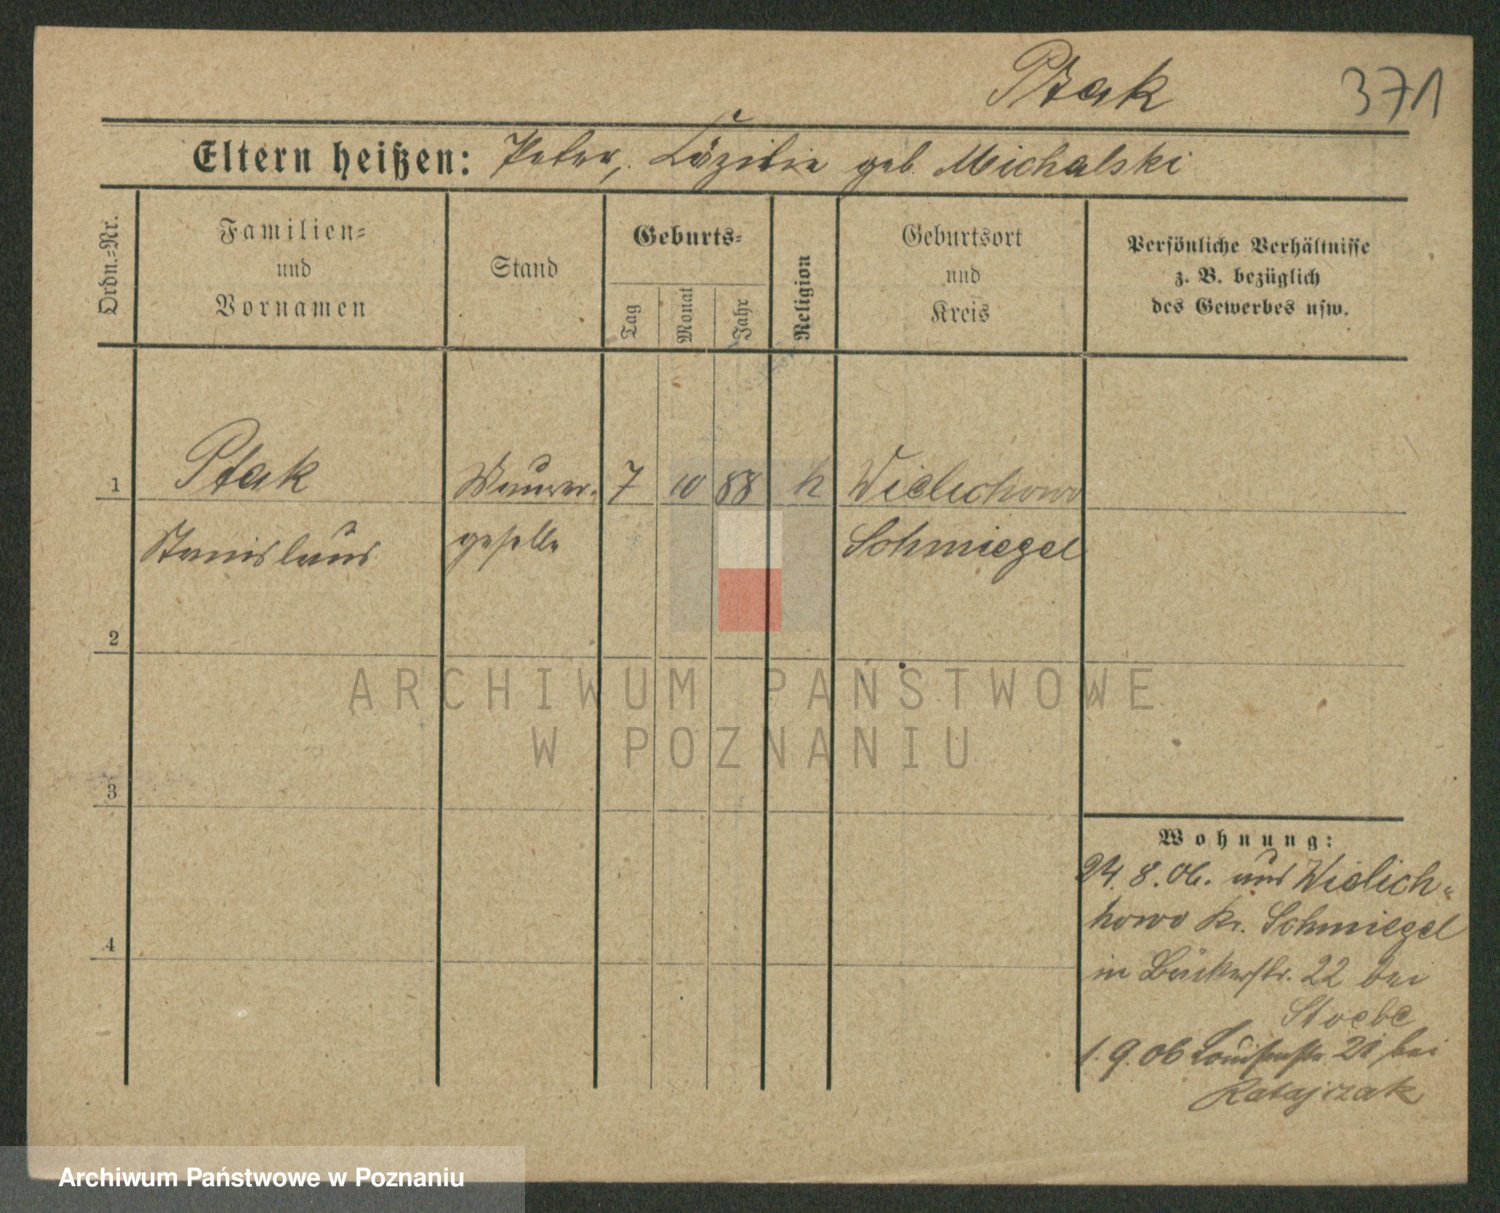 Ptak
371
Eltern heißen: Peter, Cäzilie geb. Michalski
Ordn.-Nr.
Familien-
und
Vornamen
Stand
Geburts-
Tag
Monat
Jahr
Religion
Geburtsort
und
Kreis
Persönliche Verhältnisse
z. B. bezüglich
des Gewerbes usw.
1
Ptak
Maurer-
7
10
88
k
Wielichowo
Stanislaus
geselle
Schmiegel
2
ARCHIWUM PAŃSTWOWE
W POZNANIU
3
Wohnung:
24.8.06. aus Wielich-
howo Kr. Schmiegel
4
in Bäckerstr. 22 bei
Stoebe
1.9.06 Louisenstr. 21 bei
Ratajczak
Archiwum Państwowe w Poznaniu